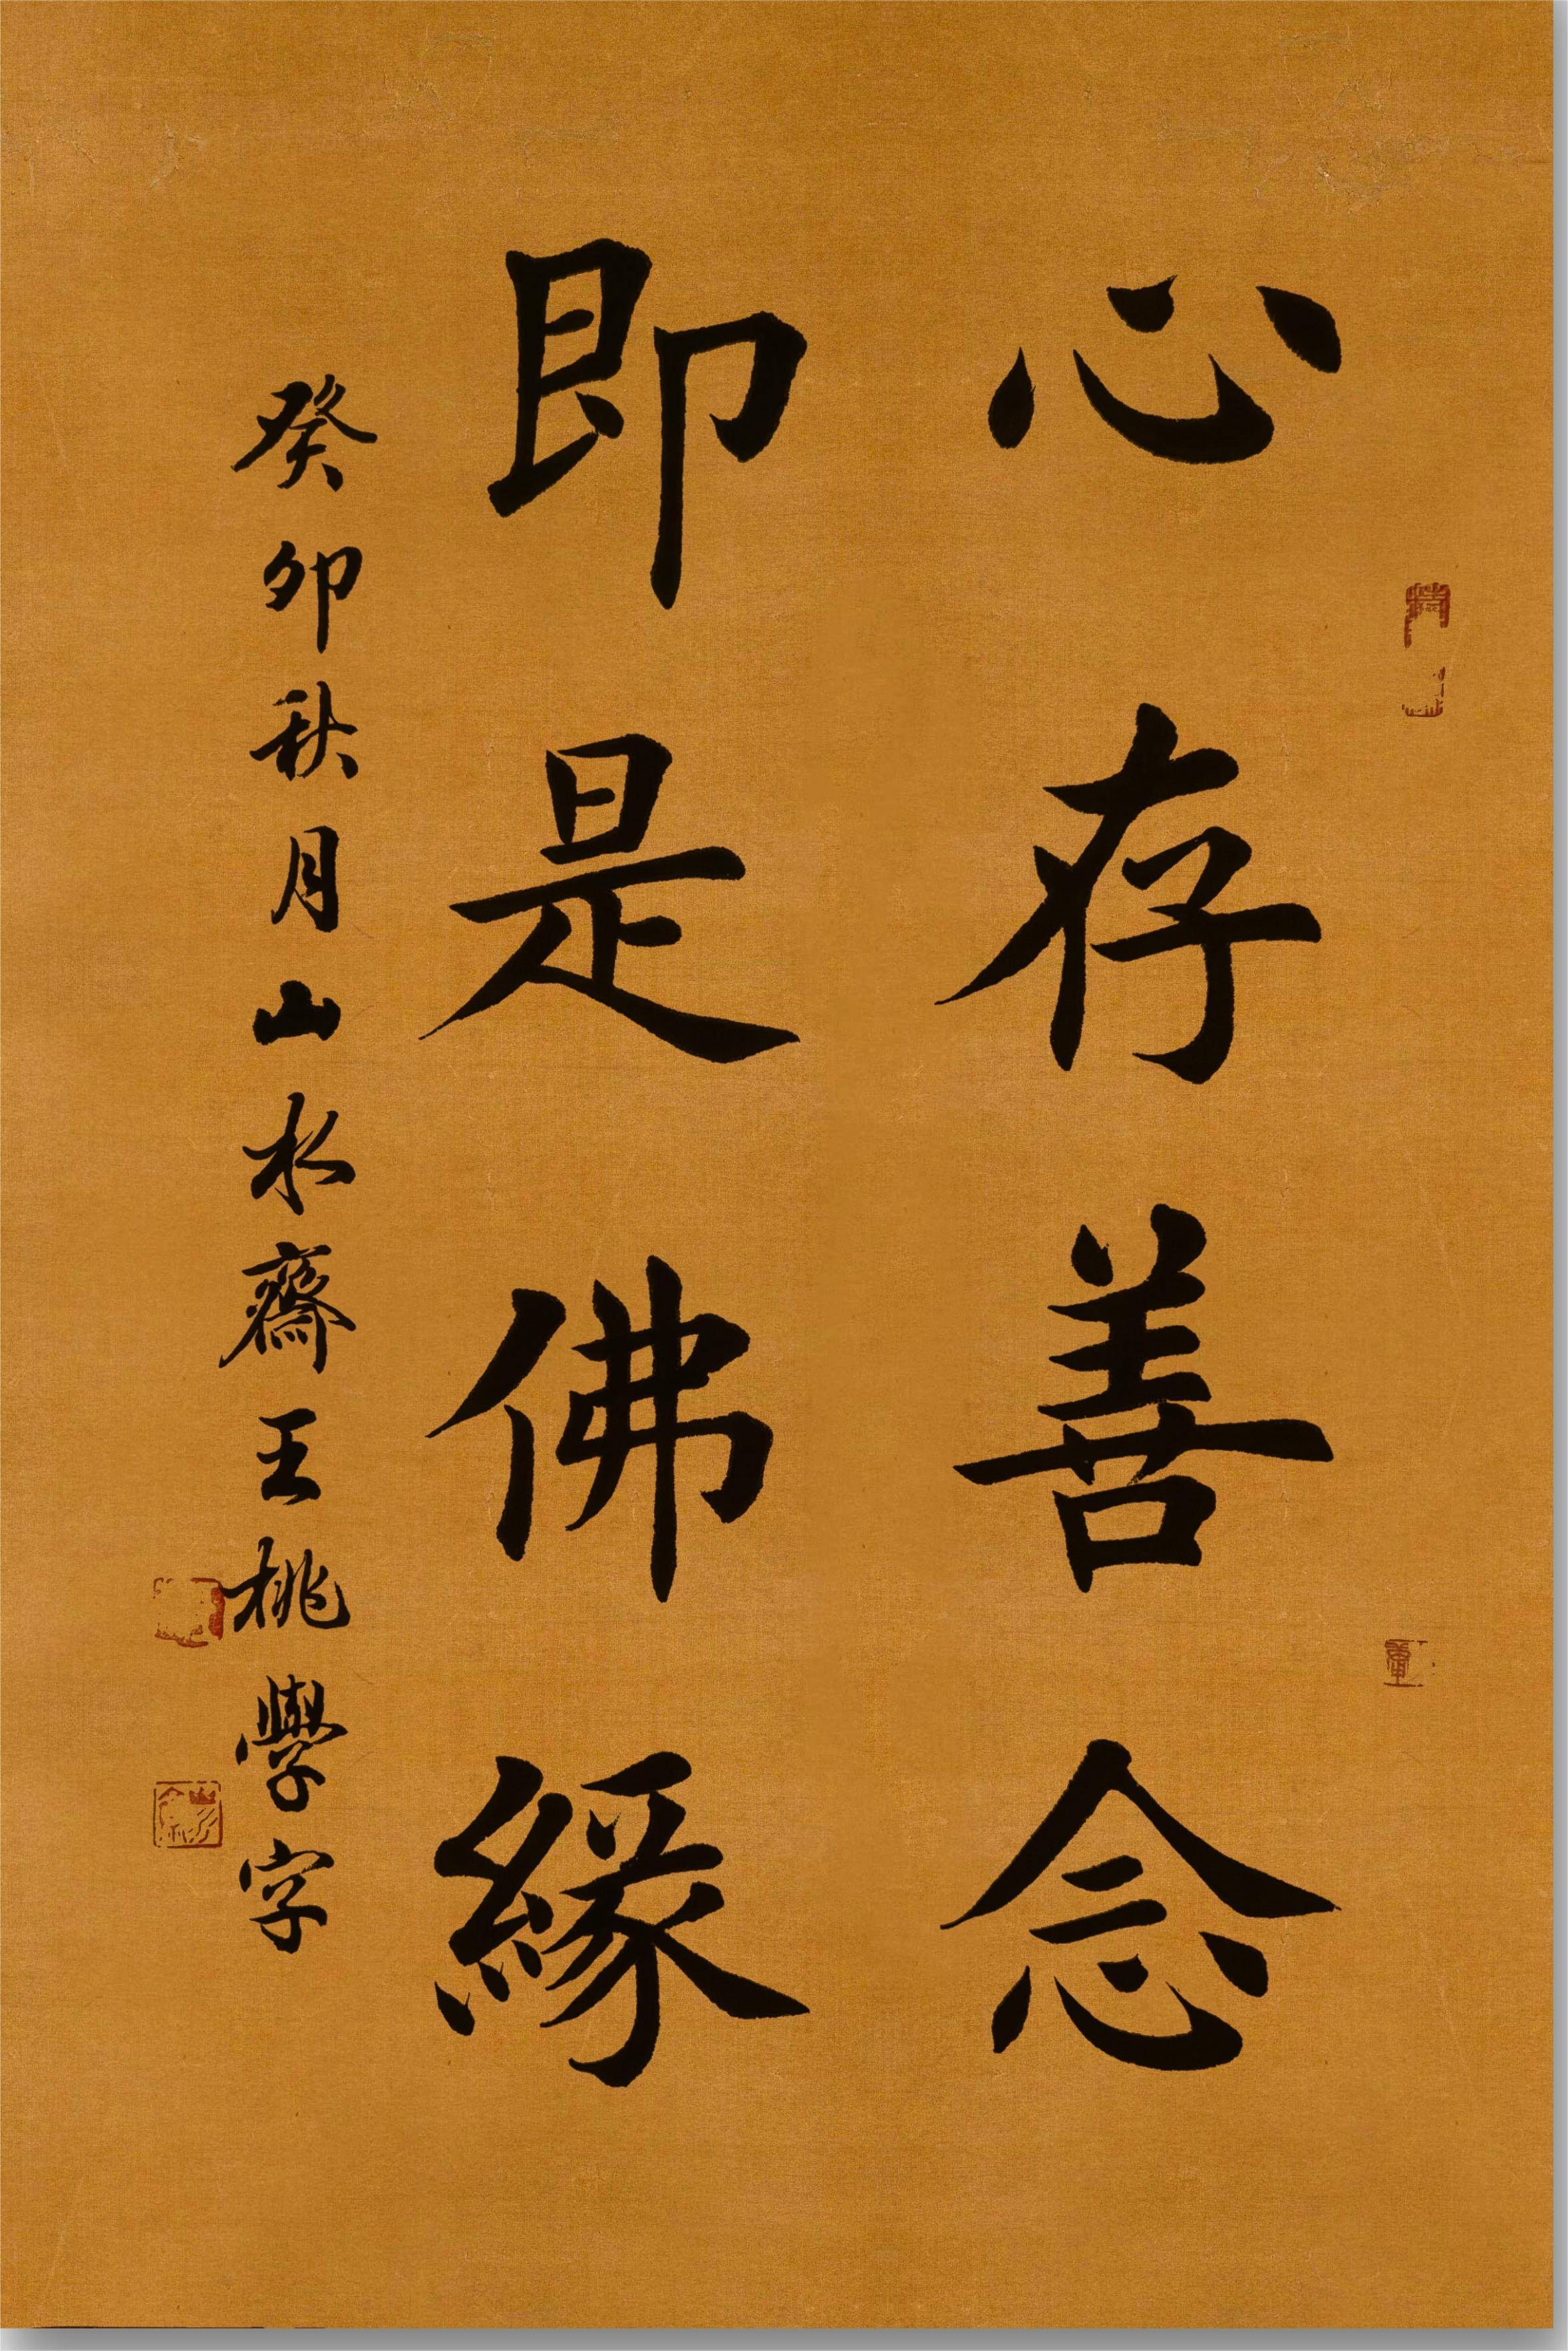 心存善念
即是佛緣
癸卯秋月山水齋王桃學字